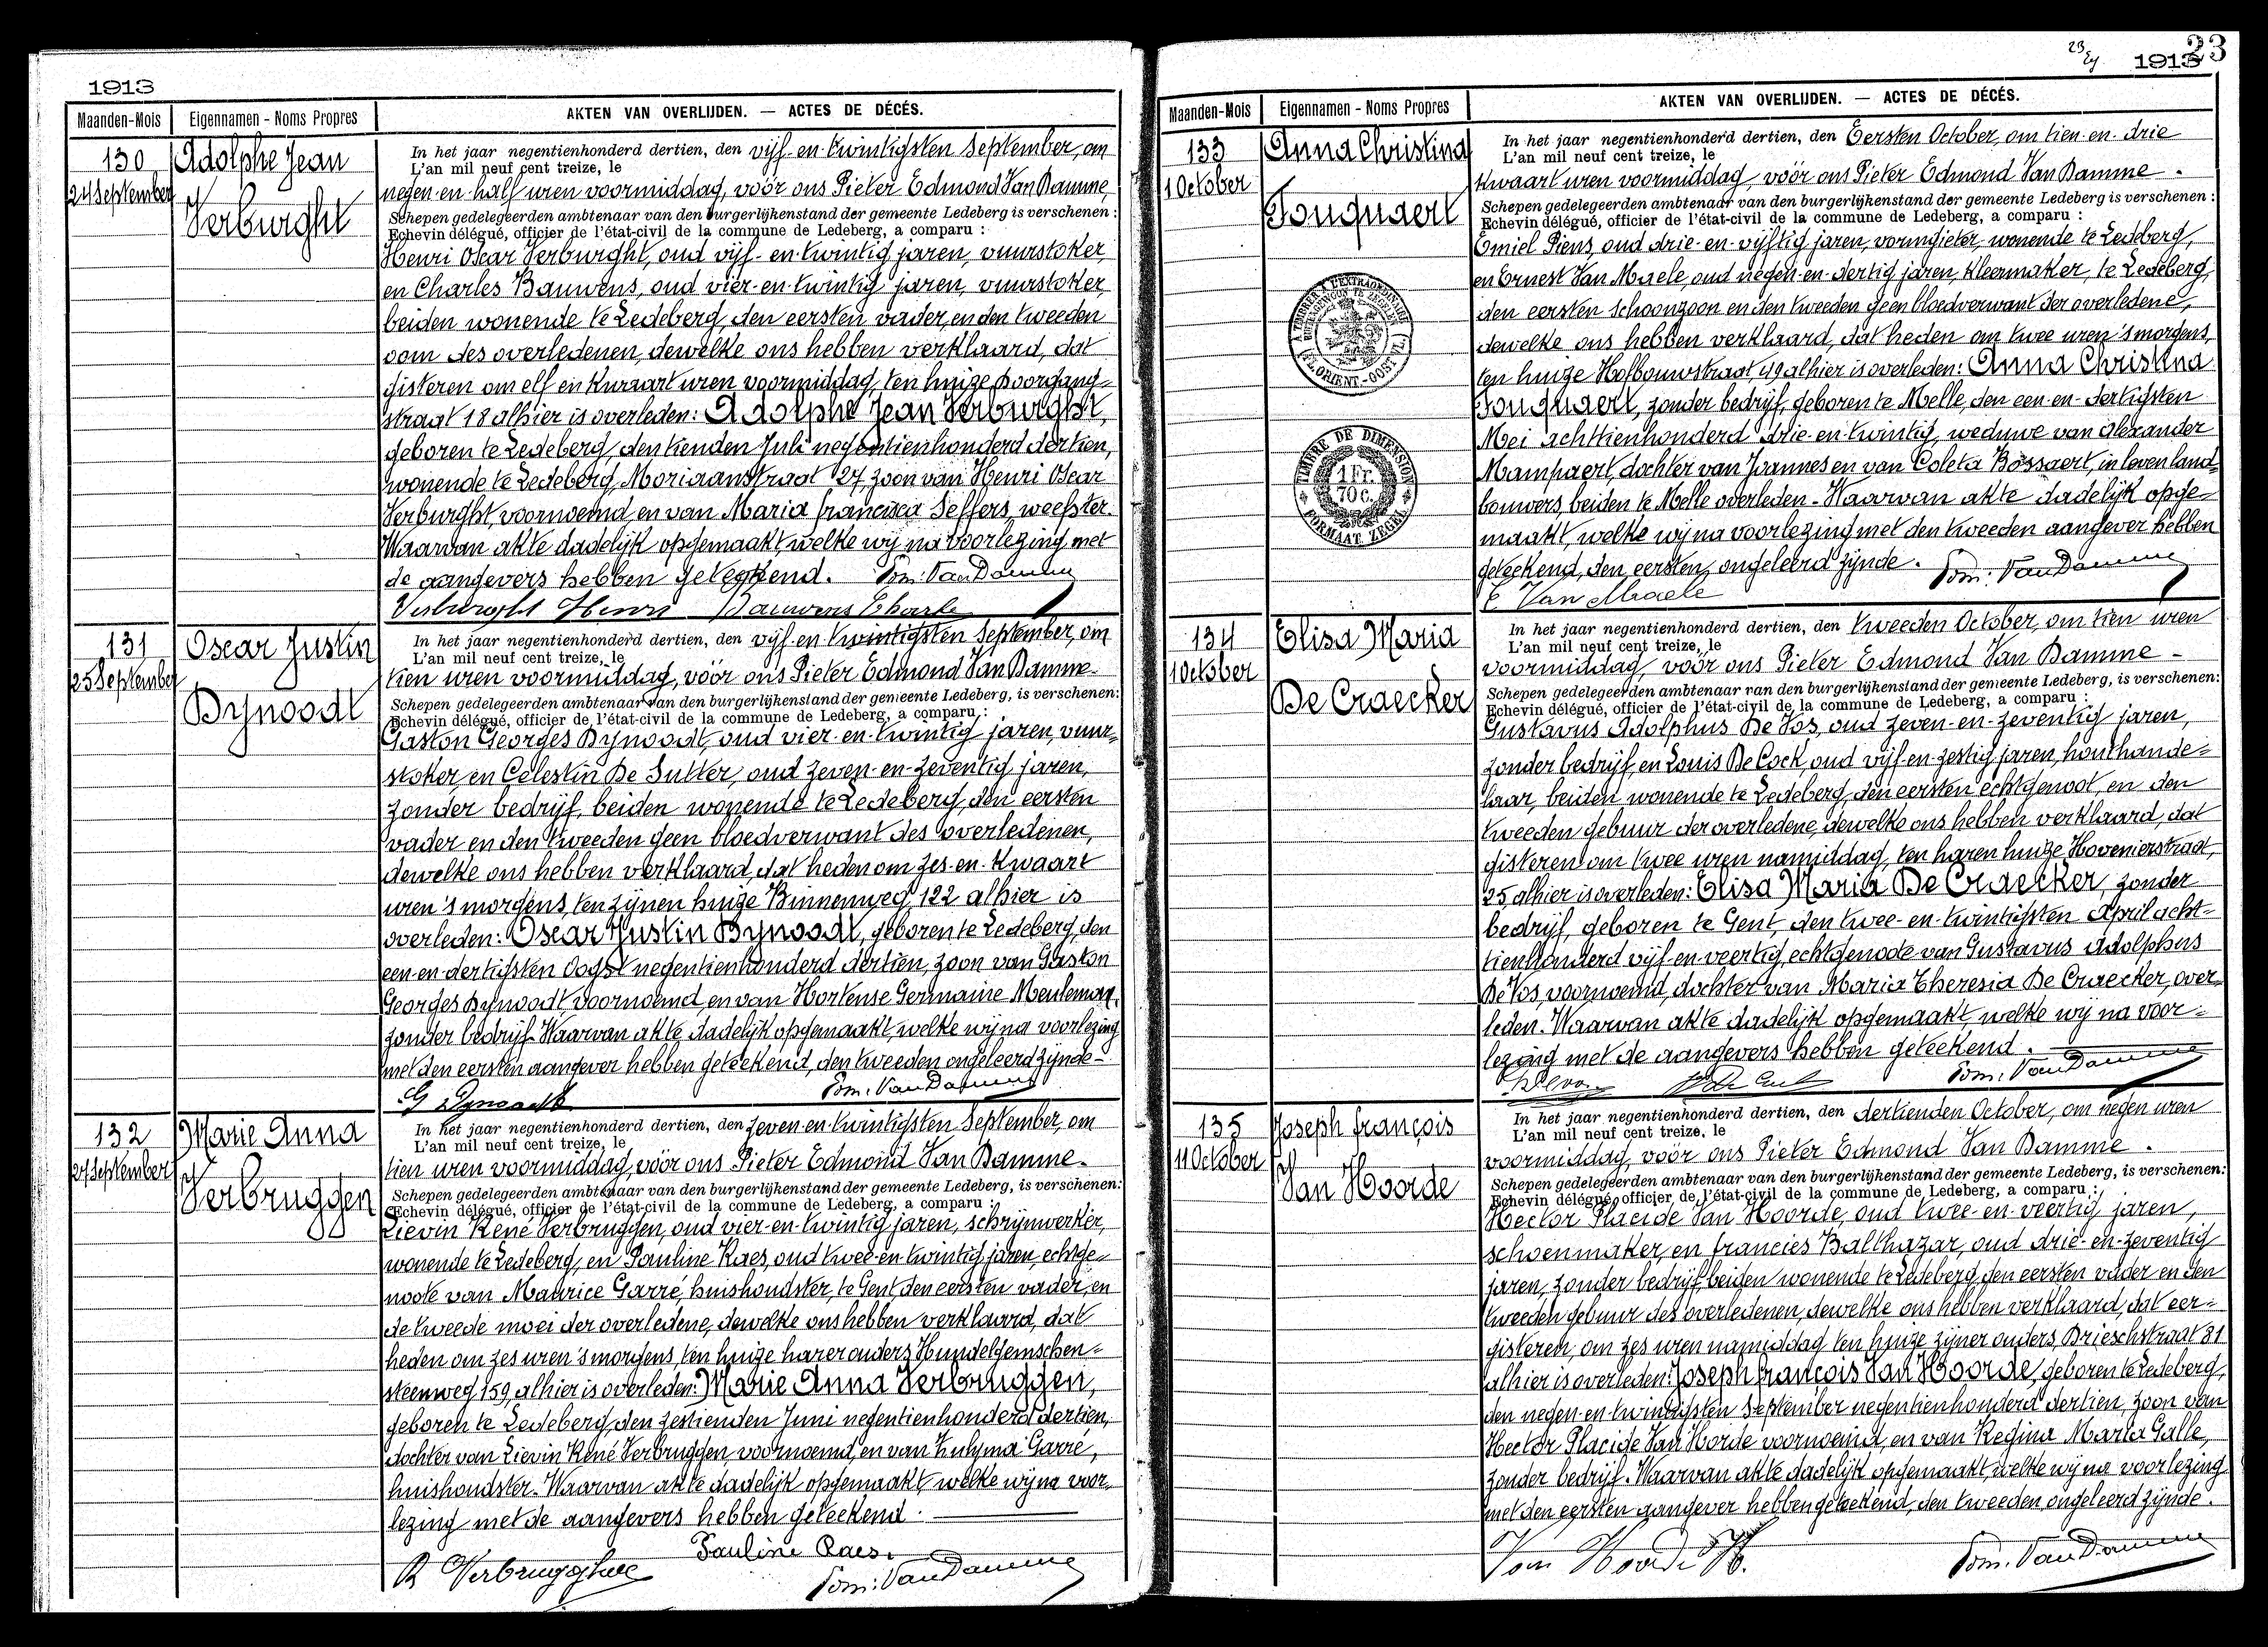 1913
Maanden-Mois
Eigennamen - Noms Propres
AKTEN VAN OVERLIJDEN. — ACTES DE DÉCÉS.
130
24 September
Adolphe Jean
Verburght
In het jaar negentienhonderd dertien, den vijf-en-twintigsten September, om
L'an mil neuf cent treize, le
negen-en-half uren voormiddag, vóór ons Pieter Edmond Van Damme,
Schepen gedelegeerden ambtenaar van den burgerlijkenstand der gemeente Ledeberg is verschenen :
Echevin délégué, officier de l'état-civil de la commune de Ledeberg, a comparu :
Henri Oscar Verburght, oud vijf-en-twintig jaren, vuurstoker,
en Charles Bauwens, oud vier-en-twintig jaren, vuurstoker,
beiden wonende te Ledeberg, den eersten vader, en den tweeden
oom des overledenen, dewelke ons hebben verklaard, dat
gisteren om elf en kwaart uren voormiddag, ten huize Doorgang=
straat 18 alhier is overleden: Adolphe Jean Verburght,
geboren te Ledeberg, den tienden Juli negentienhonderd dertien,
wonende te Ledeberg, Moriaanstraat 27, zoon van Henri Oscar
Verburght, voornoemd, en van Maria Francisca Seffers, weefster.
Waarvan akte dadelijk opgemaakt, welke wij na voorlezing met
de aangevers hebben geteekend. Pom: Van Damme
Verburght Henri Bauwens Charle
131
25 September
Oscar Justin
Dynoodt
In het jaar negentienhonderd dertien, den vijf-en-twintigsten September, om
L'an mil neuf cent treize, le
tien uren voormiddag, vóór ons Pieter Edmond Van Damme.
Schepen gedelegeerden ambtenaar van den burgerlijkenstand der gemeente Ledeberg, is verschenen:
Echevin délégué, officier de l'état-civil de la commune de Ledeberg, a comparu :
Gaston Georges Dynoodt, oud vier-en-twintig jaren, vuur=
stoker, en Celestin De Sutter, oud zeven-en-zeventig jaren,
zonder bedrijf, beiden wonende te Ledeberg, den eersten
vader en den tweeden geen bloedverwant des overledenen,
dewelke ons hebben verklaard, dat heden om zes-en-kwaart
uren 's morgens, ten zijnen huize Binnenweg, 122 alhier is
overleden: Oscar Justin Dynoodt, geboren te Ledeberg, den
een-en-dertigsten Oogst negentienhonderd dertien, zoon van Gaston
Georges Dynoodt voornoemd, en van Hortense Germaine Meuleman,
zonder bedrijf. Waarvan akte dadelijk opgemaakt, welke wij na voorlezing
met den eersten aangever hebben geteekend, den tweeden ongeleerd zijnde -
G Dynoodt Pom. Van Damme
132
27 September
Marie Anna
Verbruggen
In het jaar negentienhonderd dertien, den zeven-en-twintigsten September, om
L'an mil neuf cent treize, le
tien uren voormiddag, vóór ons Pieter Edmond Van Damme.
Schepen gedelegeerden ambtenaar van den burgerlijkenstand der gemeente Ledeberg, is verschenen:
Echevin délégué, officier de l'état-civil de la commune de Ledeberg, a comparu :
Lievin René Verbruggen, oud vier-en-twintig jaren, schrijnwerker,
wonende te Ledeberg, en Pauline Raes, oud twee-en-twintig jaren, echtge=
noote van Maurice Garré, huishoudster, te Gent, den eersten vader, en
de tweede moei der overledene, dewelke ons hebben verklaard, dat
heden om zes uren 's morgens, ten huize harer ouders, Hundelgemschen=
steenweg 159, alhier is overleden: Marie Anna Verbruggen,
geboren te Ledeberg, den zestienden Juni negentienhonderd dertien,
dochter van Lievin René Verbruggen, voornoemd, en van Zulyma Garré,
huishoudster. Waarvan akte dadelijk opgemaakt, welke wij na voor=
lezing met de aangevers hebben geteekend.
Pauline Raes.
R Verbrugghe Pom: Van Damme
23
1913
23
Maanden-Mois
Eigennamen - Noms Propres
AKTEN VAN OVERLIJDEN. — ACTES DE DÉCÉS.
133
1 October
Anna Christina
Fouquaert
TIMBRE DE DIMENSION
1 Fr.
70 c.
FORMAAT ZEGEL
In het jaar negentienhonderd dertien, den Eersten October, om tien-en-drie
L'an mil neuf cent treize, le
kwaart uren voormiddag, vóór ons Pieter Edmond Van Damme.
Schepen gedelegeerden ambtenaar van den burgerlijkenstand der gemeente Ledeberg is verschenen :
Echevin délégué, officier de l'état-civil de la commune de Ledeberg, a comparu :
Emiel Piens, oud drie-en-vijftig jaren, vormgieter, wonende te Ledeberg,
en Ernest Van Maele, oud negen-en-dertig jaren, kleermaker, te Ledeberg,
den eersten schoonzoon en den tweeden geen bloedverwant der overledene,
dewelke ons hebben verklaard, dat heden om twee uren 's morgens,
ten huize Hofbouwstraat, 49 alhier is overleden: Anna Christina
Fouquaert, zonder bedrijf, geboren te Melle, den een-en-dertigsten
Mei achttienhonderd drie-en-twintig, weduwe van Alexander
Mampaert, dochter van Joannes en van Coleta Bossaert, in leven land=
bouwers, beiden te Melle overleden. Waarvan akte dadelijk opge=
maakt, welke wij na voorlezing met den tweeden aangever hebben
geteekend, den eersten, ongeleerd zijnde. Pom: Van Damme
E Van Maele
134
1 October
Elisa Maria
De Craecker
In het jaar negentienhonderd dertien, den tweeden October, om tien uren
L'an mil neuf cent treize, le
voormiddag, vóór ons Pieter Edmond Van Damme -
Schepen gedelegeerden ambtenaar van den burgerlijkenstand der gemeente Ledeberg, is verschenen:
Echevin délégué, officier de l'état-civil de la commune de Ledeberg, a comparu :
Gustavus Adolphus De Vos, oud zeven-en-zeventig jaren,
zonder bedrijf, en Louis De Cock, oud vijf-en-zestig jaren, houthande=
laar, beiden wonende te Ledeberg, den eersten echtgenoot, en den
tweeden gebuur der overledene, dewelke ons hebben verklaard, dat
gisteren om twee uren namiddag, ten haren huize Hovenierstraat,
25, alhier is overleden: Elisa Maria De Craecker, zonder
bedrijf, geboren te Gent, den twee-en-twintigsten April acht=
tienhonderd vijf-en-veertig, echtgenoote van Gustavus Adolphus
De Vos, voornoemd, dochter van Maria Theresia De Craecker, over=
leden. Waarvan akte dadelijk opgemaakt, welke wij na voor=
lezing met de aangevers hebben geteekend.
Pom: Van Damme
135
11 October
Joseph François
Van Hoorde
In het jaar negentienhonderd dertien, den dertienden October, om negen uren
L'an mil neuf cent treize, le
voormiddag, vóór ons Pieter Edmond Van Damme.
Schepen gedelegeerden ambtenaar van den burgerlijkenstand der gemeente Ledeberg, is verschenen:
Echevin délégué, officier de l'état-civil de la commune de Ledeberg, a comparu :
Hector Placide Van Hoorde, oud twee-en-veertig jaren,
schoenmaker, en Francies Balthazar, oud drie-en-zeventig
jaren, zonder bedrijf, beiden wonende te Ledeberg, den eersten vader en den
tweeden gebuur des overledenen, dewelke ons hebben verklaard, dat eer=
gisteren, om zes uren namiddag ten huize zijner ouders, Brieschstraat 31
alhier is overleden: Joseph François Van Hoorde, geboren te Ledeberg,
den negen-en-twintigsten September negentienhonderd dertien, zoon van
Hector Placide Van Hoorde voornoemd, en van Regina Maria Galle,
zonder bedrijf. Waarvan akte dadelijk opgemaakt, welke wij na voorlezing
met den eersten aangever hebben geteekend, den tweeden, ongeleerd zijnde.
Van Hoorde H. Pom. Van Damme